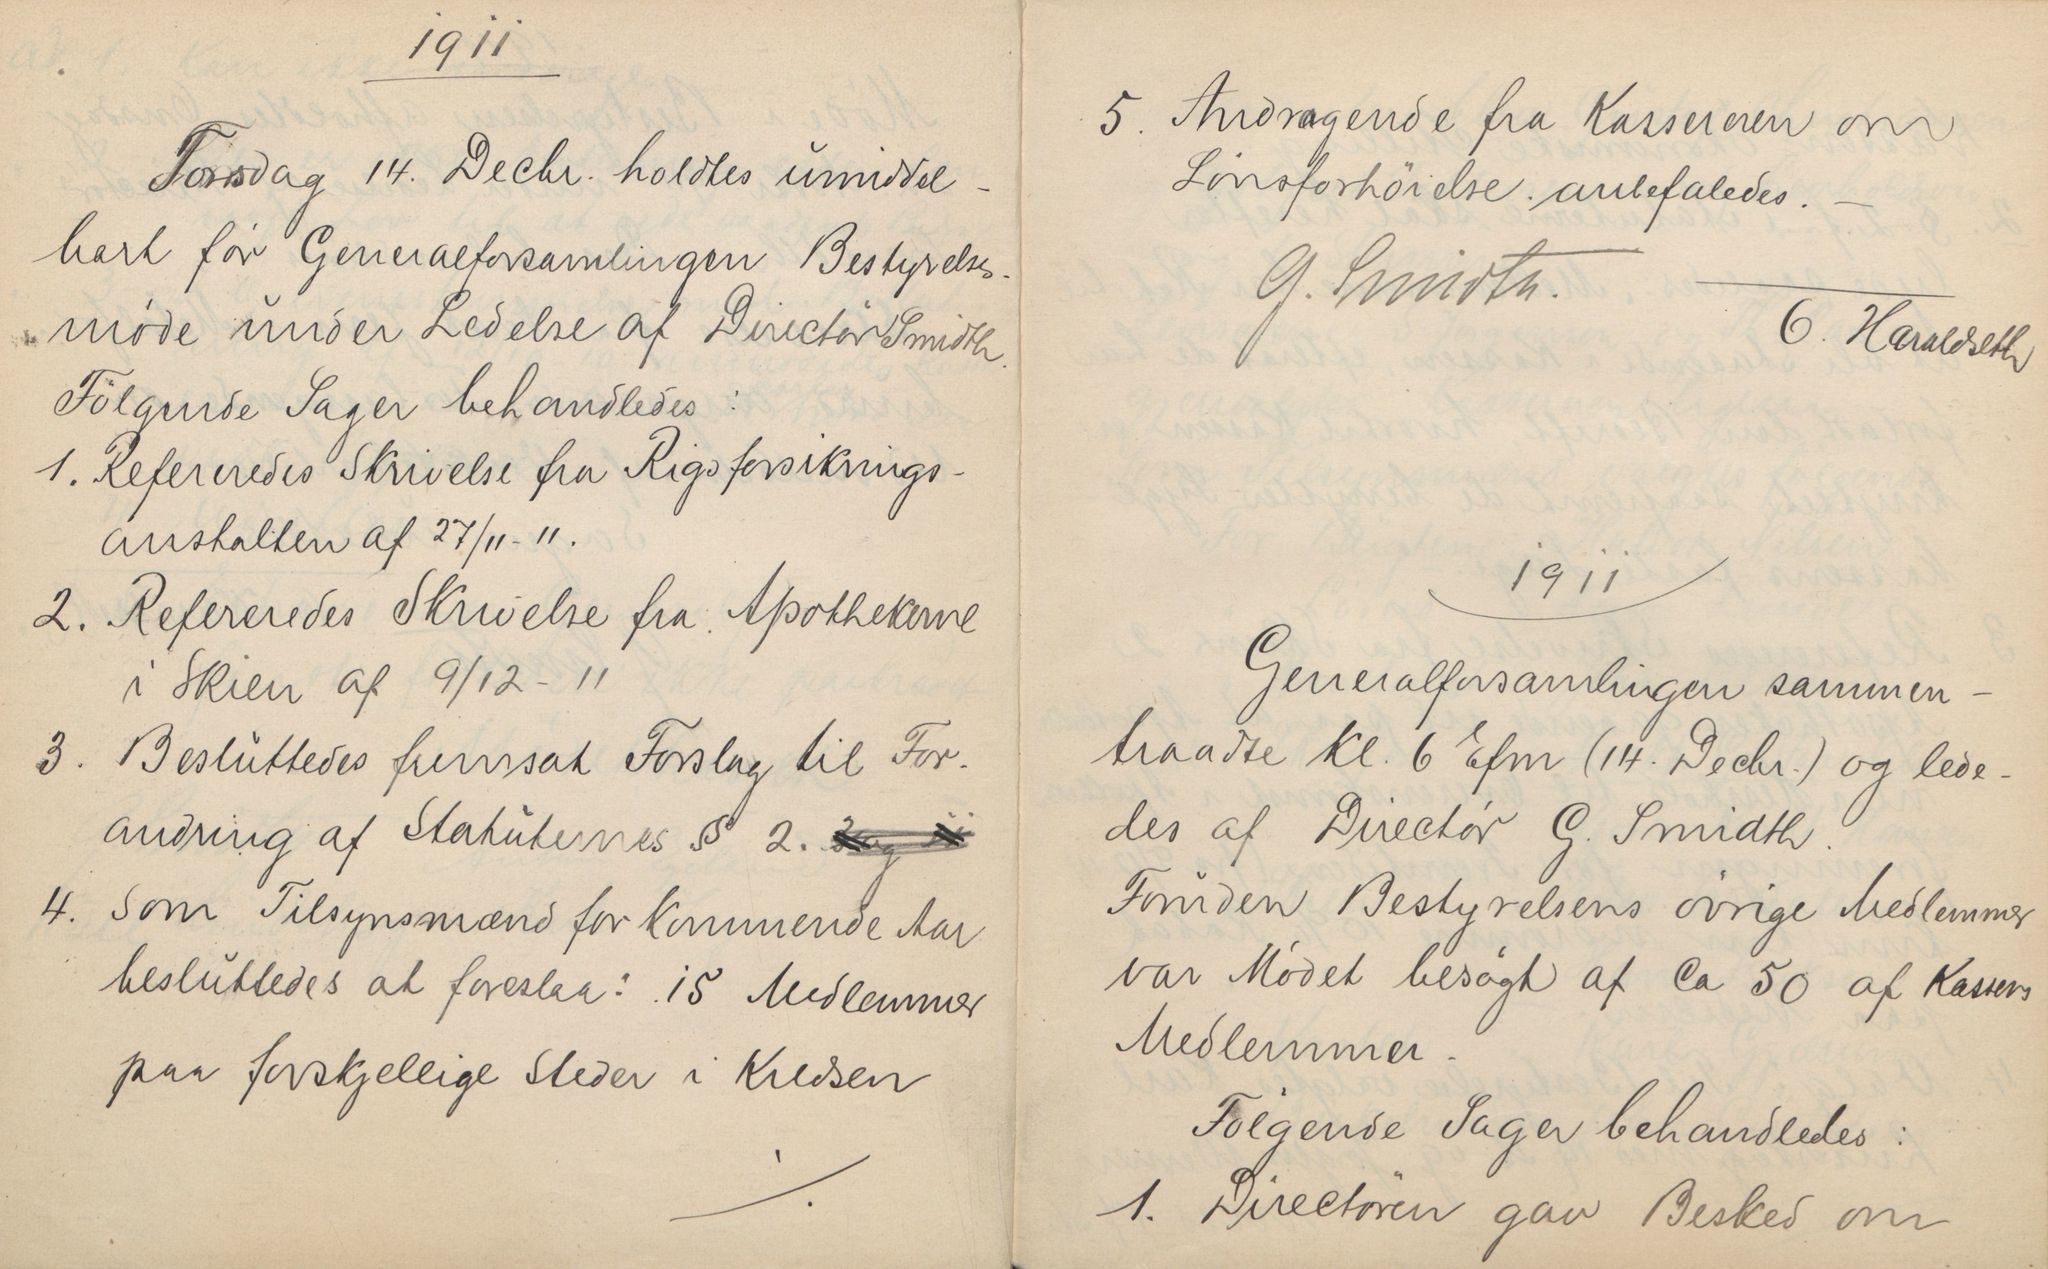 1911
Torsdag 14. Decbr. holdtes umiddel-
bart før Generalforsamlingen Bestyrelses-
møde under Ledelse af Directør Smidth.
Følgende Sager behandledes:
1. Refereredes Skrivelse fra Rigsforsikrings-
anstalten af 27/11-11.
2. Refereredes Skrivelse fra Apothekerne
i Skien af 9/12-11
3. Besluttedes fremsat Forslag til For-
andring af Statuternes § 2.
4. Som Tilsynsmænd for kommende Aar
besluttedes at foreslaa: 15 Medlemmer
paa forskjellige Steder i Kredsen
./.
5. Andragende fra Kassereren om
Lønsforhøielse anbefaledes. —
G. Smidth.
C. Haraldseth
1911
Generalforsamlingen sammen-
traadte kl. 6 Efm (14. Decbr.) og lede-
des af Directør G. Smidth.
Foruden Bestyrelsens øvrige Medlemmer
var Mødet besøgt af ca 50 af Kassens
Medlemmer.
Følgende Sager behandledes:
1. Directøren gav Besked om